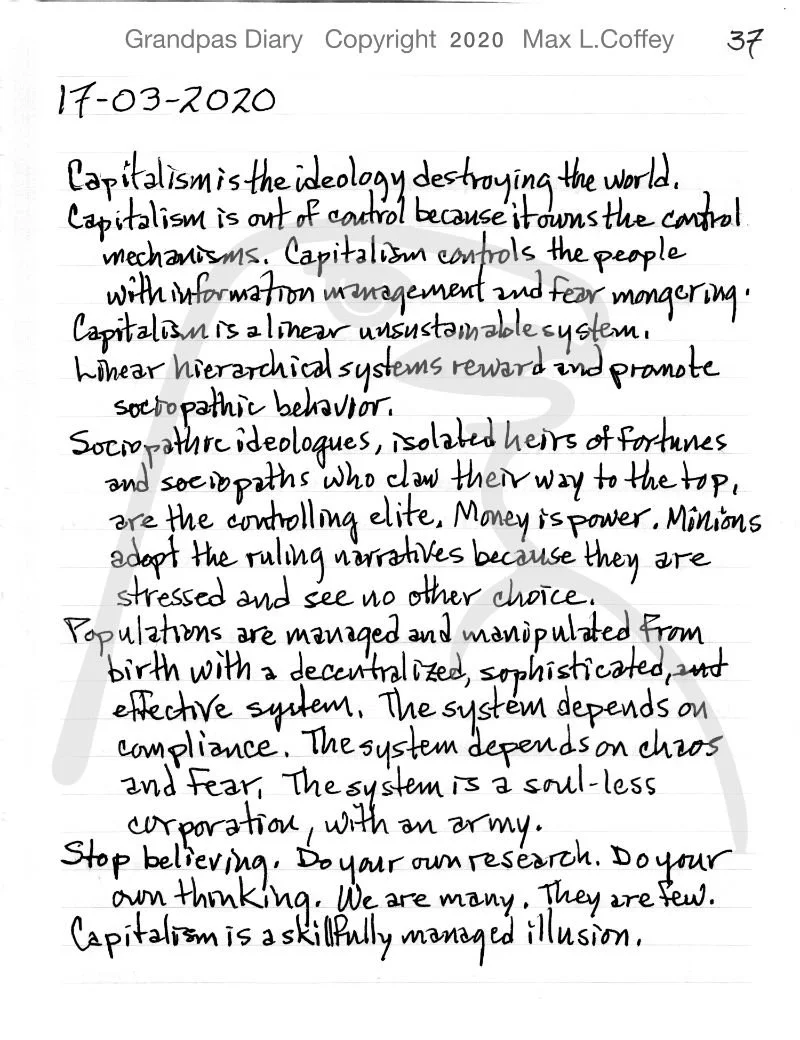 Grandpas Diary Copyright 2020 Max L.Coffey 37
17-03-2020
Capitalism is the ideology destroying the world.
Capitalism is out of control because it owns the control
mechanisms. Capitalism controls the people
with information management and fear mongering.
Capitalism is a linear unsustainable system.
Linear hierarchical systems reward and promote
sociopathic behavior.
Sociopathic ideologues, isolated heirs of fortunes
and sociopaths who claw their way to the top,
are the controlling elite. Money is power. Minions
adopt the ruling narratives because they are
stressed and see no other choice.
Populations are managed and manipulated from
birth with a decentralized, sophisticated, and
effective system. The system depends on
compliance. The system depends on chaos
and fear. The system is a soul-less
corporation, with an army.
Stop believing. Do your own research. Do your
own thinking. We are many. They are few.
Capitalism is a skillfully managed illusion.